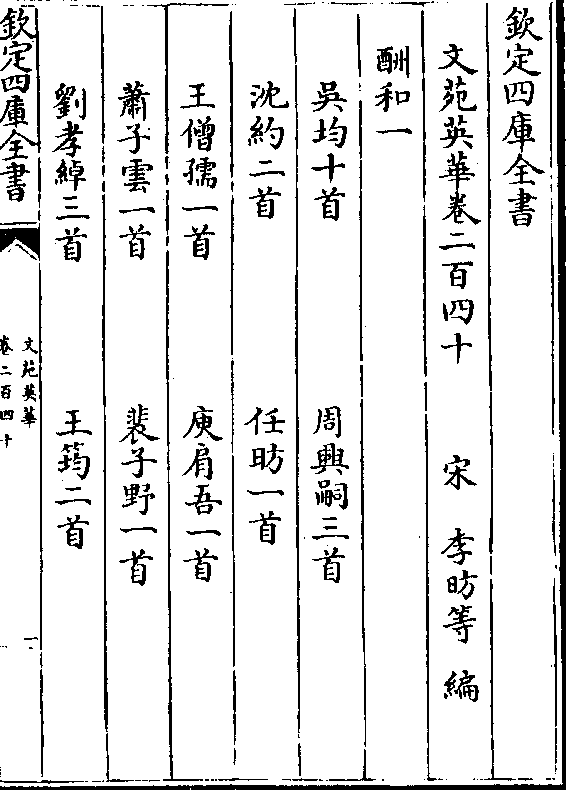 欽定四庫全書
文苑英華卷二百四十 宋 李昉等 編
酬和一
吳均十首 周興嗣三首
沈約二首 任昉一首
王僧孺一首 庾肩吾一首
蕭子雲一首 裴子野一首
劉孝綽三首 王筠二首
欽定四庫全書
文苑英華
卷二百四十
一